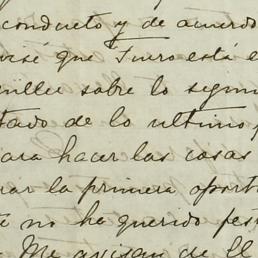 conducto y de acuerdo
que Fuero está e
sobre lo segun
tado de lo ultimo,
ara hacer las cosas
rar la primera oport
no ha querido
Me avisan de El